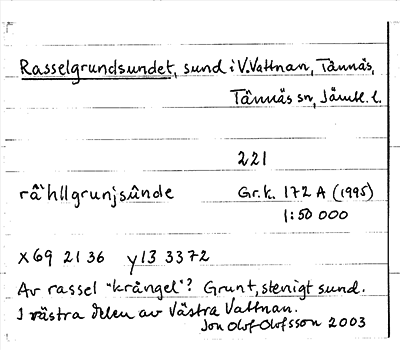 Rasselgrundsundet, sund i V. Vattnan, Tännäs,
Tännäs sn, Jämtl. l.
221
rä`hllgrunjsûnde Gr.k. 172 A (1995)
1:50 000
x69 21 36 y13 3372
Av rassel "krångel"? Grunt, stenigt sund.
I västra delen av Västra Vattnan.
Jon Olof Olofsson 2003